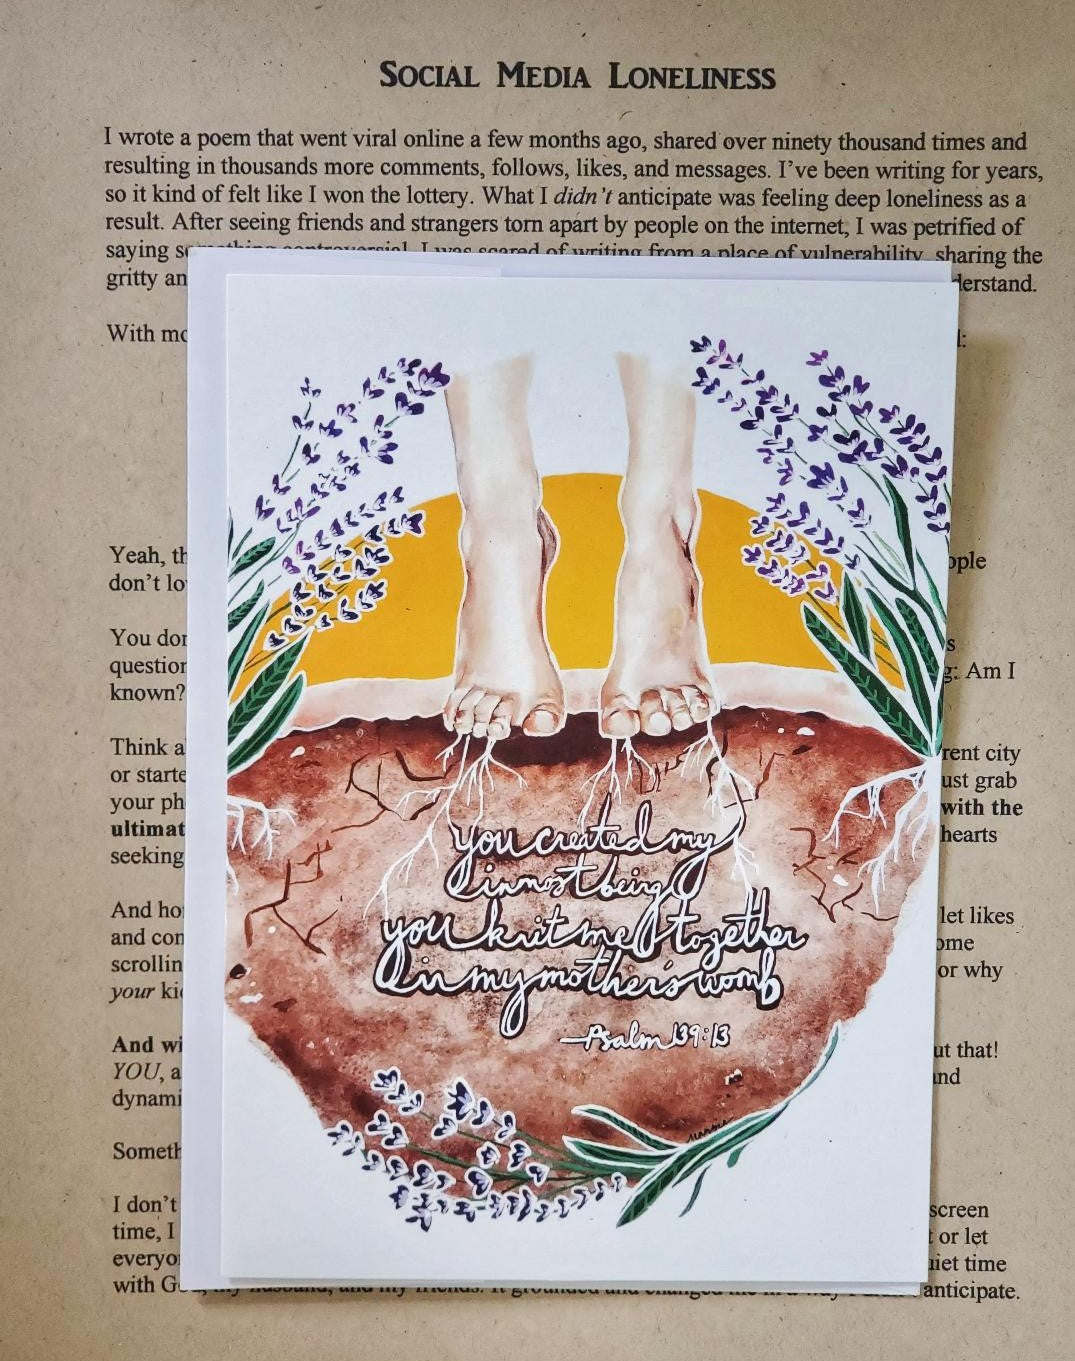 SOCIAL MEDIA LONELINESS
I wrote a poem that went viral online a few months ago, shared over ninety thousand times and
resulting in thousands more comments, follows, likes, and messages. I've been writing for years,
so it kind of felt like I won the lottery. What I didn't anticipate was feeling deep loneliness as a
result. After seeing friends and strangers torn apart by people on the internet, I was petrified of
saying something controversial. I was scared of writing from a place of vulnerability, sharing the
gritty an derstand.
With mo
Yeah, th ople
don't lo
You don s
question g: Am I
known?
Think a rent city
or starte ust grab
your ph with the
ultimat hearts
seeking
And ho let likes
and con ome
scrollin or why
your kid
And wi ut that!
YOU, a and
dynami
Someth
I don't screen
time, I t or let
everyo uiet time
with God, my husband, and my friends. It grounded and changed me in a way I didn't anticipate.
you created my
inmost being
you knit me together
in my mother's womb
—Psalm 139:13